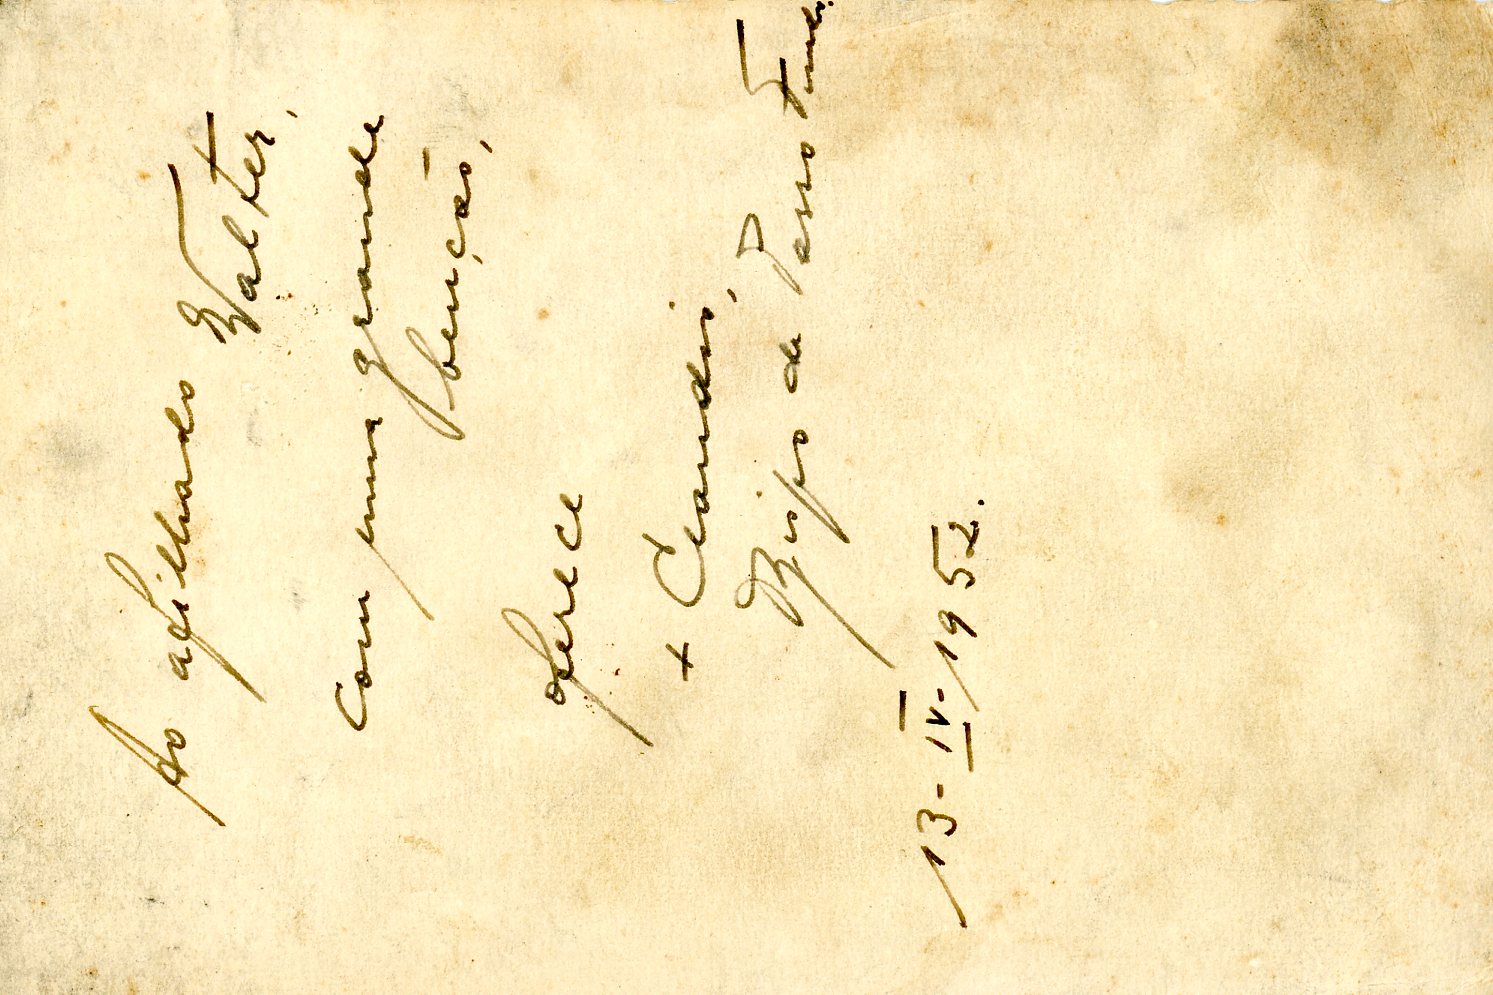 Ao afilhado Walter,
com uma grande
benção,
oferece
+ Claudio,
Bispo de Passo Fundo.
13-IV-1952.